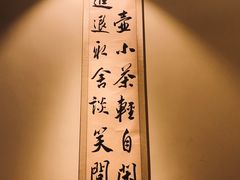 壺小茶輕自閑
進退永舍談笑間